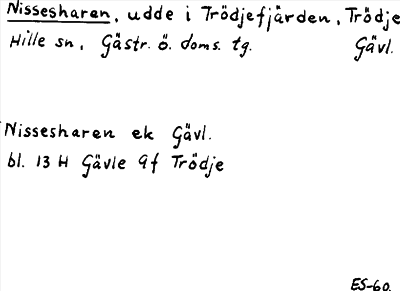 Nissesharen, udde i Trödjefjärden, Trödje
Hille sn, Gästr. ö. doms. tg. Gävl.
Nissesharen ek Gävl.
bl. 13 H Gävle 9f Trödje
ES-60.